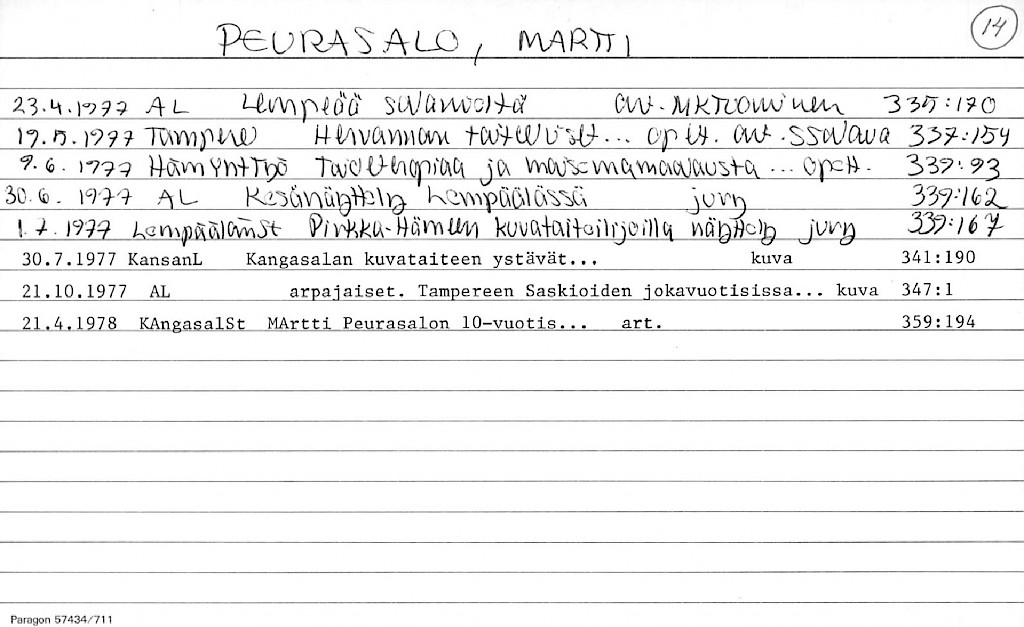 14
PEURASALO, MARTTI
23.4.1977 AL Lempeää art. MKTuominen 335:170
19.5.1977 Tampere Hervannan taiteelliset... opett. art. SSalava 337:154
9.6.1977 HämYhtTyö Taideterapiaa ja maisemamaalausta ... opett. 339:93
30.6.1977 AL Kesänäyttely Lempäälässä jury 339:162
1.7.1977 LempäälänSt Pirkka-Hämeen kuvataiteilijoilla näyttely jury 339:167
30.7.1977 KansanL Kangasalan kuvataiteen ystävät... kuva 341:190
21.10.1977 AL arpajaiset. Tampereen Saskioiden jokavuotisissa... kuva 347:1
21.4.1978 KAngasalSt MArtti Peurasalon 10-vuotis... art. 359:194
Paragon 57434/711